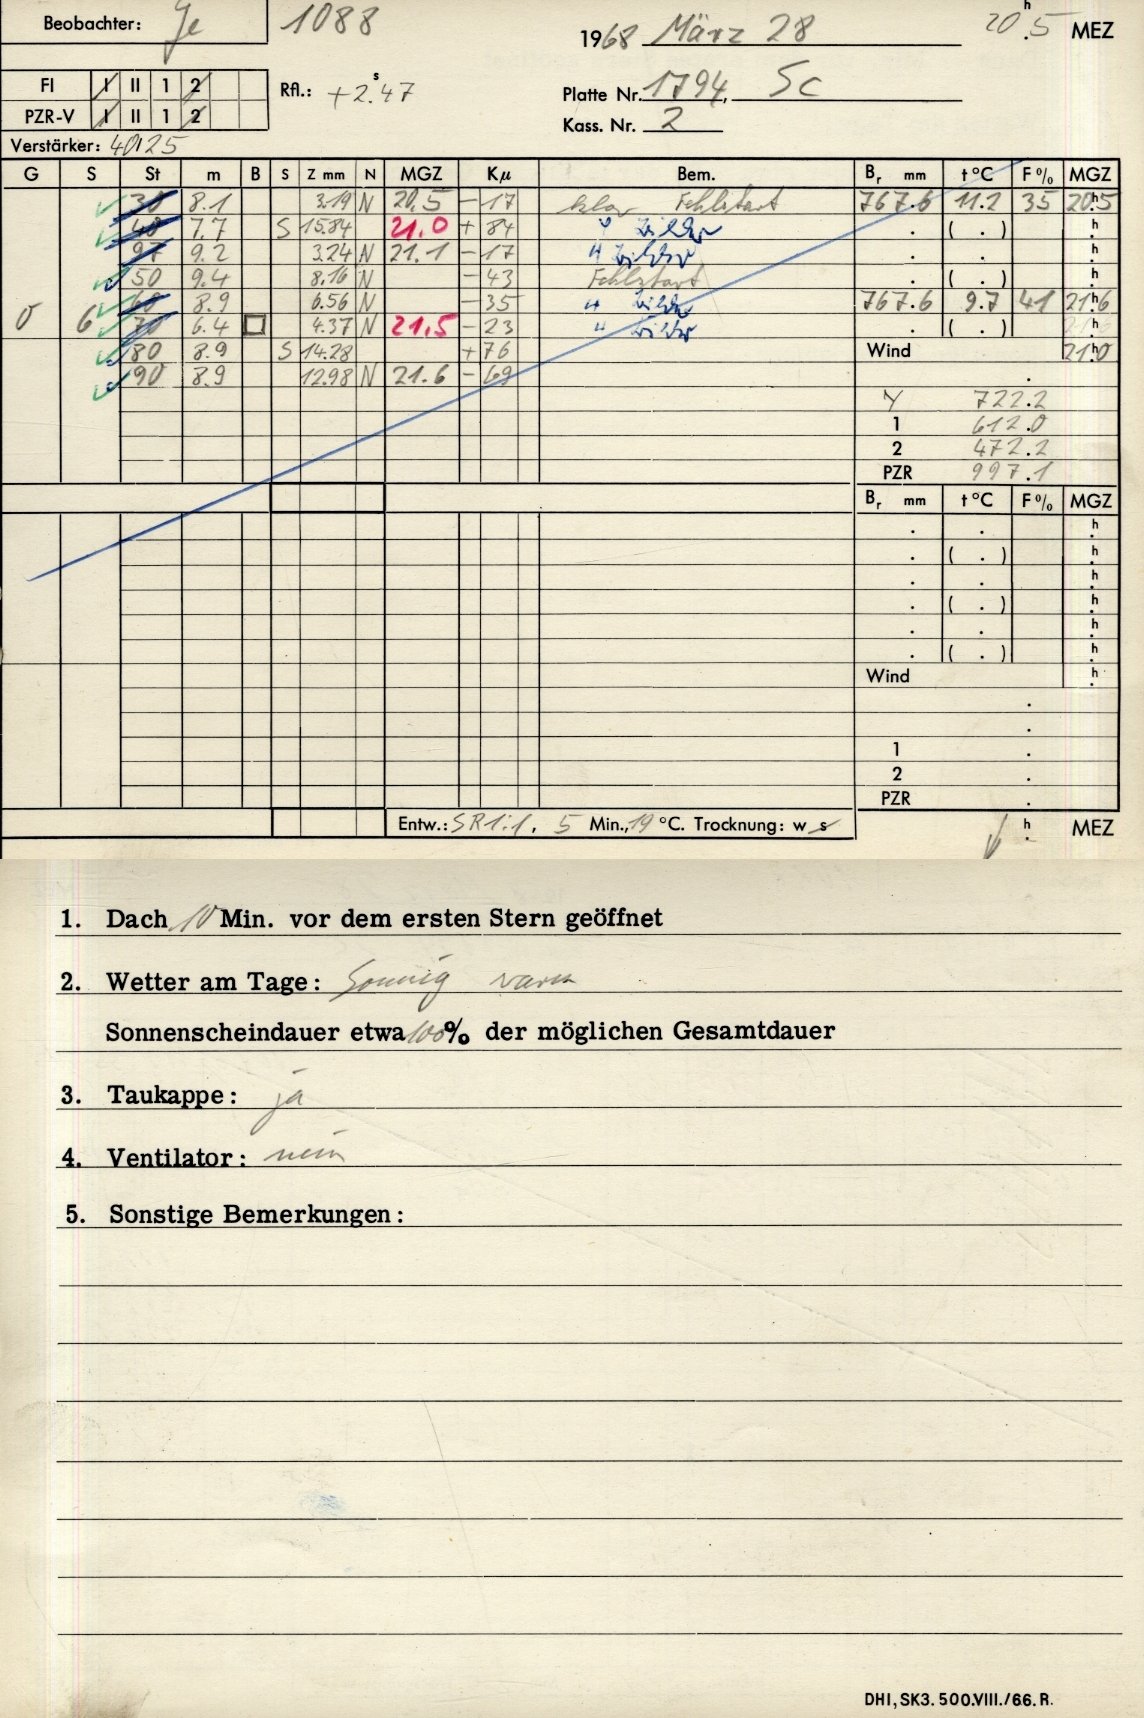 Beobachter: Je 1088 1968 März 28 20.5 h MEZ
FI I II 1 2 Rfl.: +2.47 s Platte Nr. 1794, Sc
PZR-V I II 1 2 Kass. Nr. 2
Verstärker: 40125
G S St m B S Z mm N MGZ Kµ Bem. Br mm t °C F % MGZ
30 8.1 3.19 N 20.5 - 17 klar Fehlstart 767.6 11.2 35 20.5 h
40 7.7 S 15.84 21.0 + 84 " . ( . ) h
97 9.2 3.24 N 21.1 - 17 " . . h
50 9.4 8.16 N - 43 Fehlstart . ( . ) h
60 8.9 6.56 N - 35 " 767.6 9.7 41 21.6 h
0 6 70 6.4 4.37 N 21.5 - 23 " . ( . ) h
80 8.9 S 14.28 + 76 Wind 21.0 h
90 8.9 12.98 N 21.6 - 69 .
Y 722.2
1 612.0
2 472.2
PZR 997.1
Br mm t °C F % MGZ
. . h
. ( . ) h
. . h
. ( . ) h
. . h
. ( . ) h
Wind h
.
.
1 .
2 .
PZR .
Entw.: SR1:1, 5 Min., 19 °C. Trocknung: w s h MEZ
1. Dach 10 Min. vor dem ersten Stern geöffnet
2. Wetter am Tage: Sonnig warm
Sonnenscheindauer etwa 100% der möglichen Gesamtdauer
3. Taukappe: ja
4. Ventilator: nein
5. Sonstige Bemerkungen:
DHI, SK3. 500.VIII./66. R.